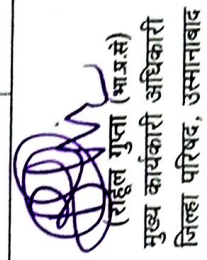 (राहूल गुप्ता (भा.प्र.से)
मुख्य कार्यकारी अधिकारी
जिल्हा परिषद, उस्मानाबाद